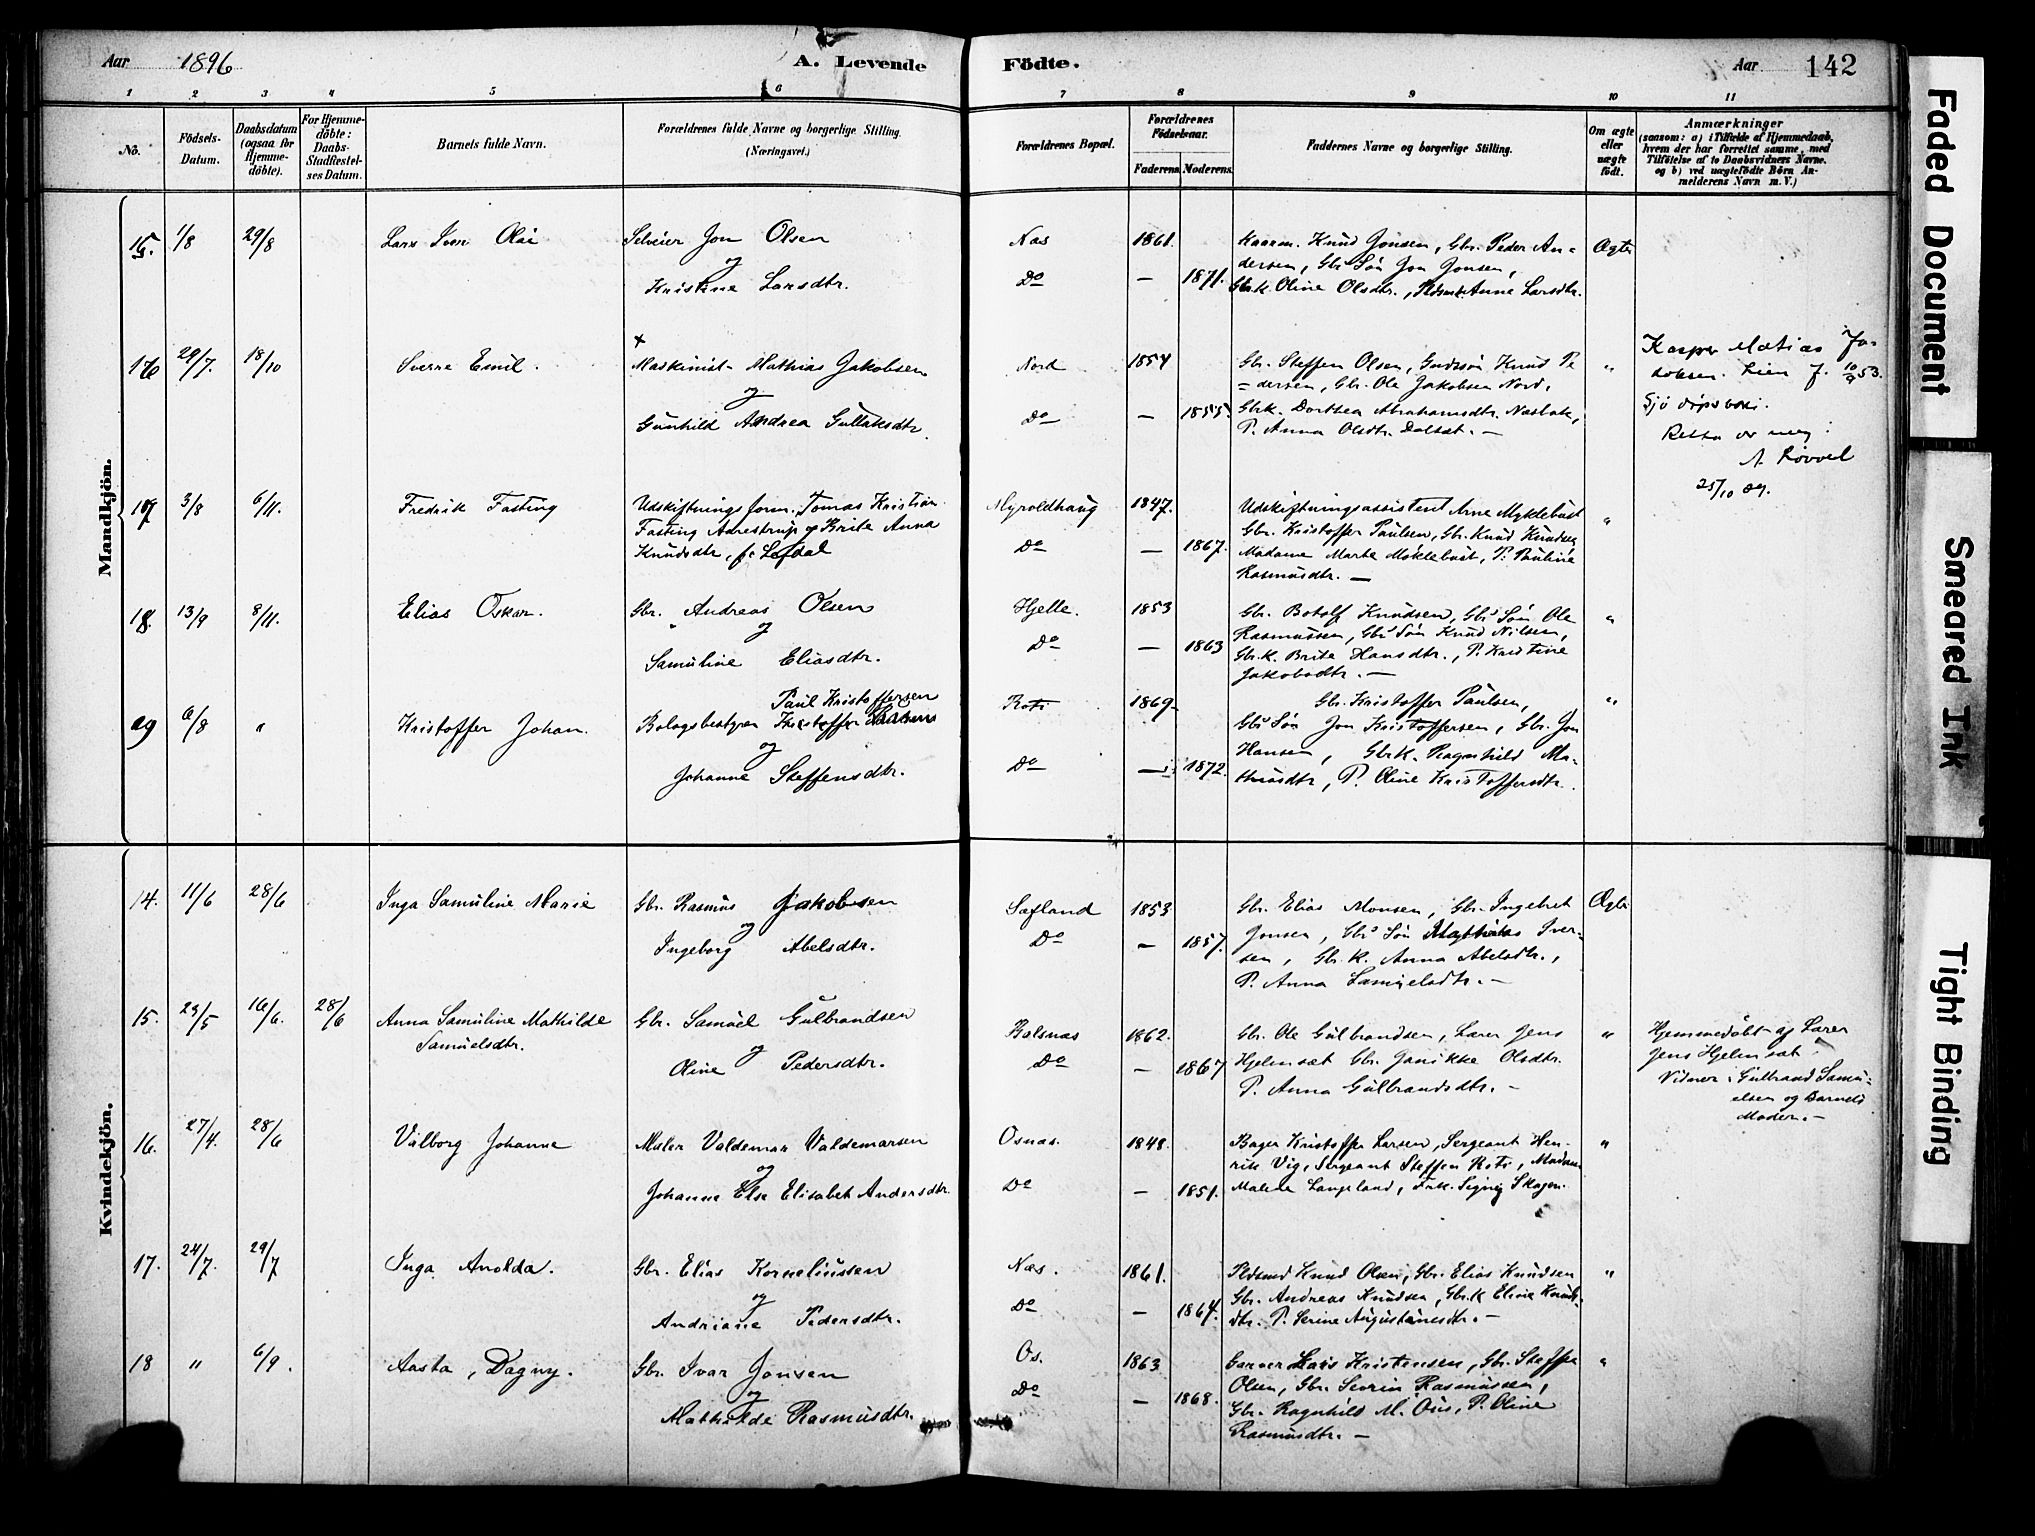 Aar 1896 A. Levende Fødte. Aar 142
1 2 3 4 5 6 7 8 9 10 11
No.
Födsels-Datum.
Daabsdatum (ogsaa for Hjemme-döbte).
For Hjemme-döbte: Daabs-Stadfæstel-ses Datum.
Barnets fulde Navn.
Forældrenes fulde Navne og borgerlige Stilling.
(Næringsvei.)
Forældrenes Bopæl.
Forældrenes Födselsaar.
Faderens Moderens
Faddernes Navne og borgerlige Stilling.
Om ægte eller uægte födt.
Anmærkninger
(saasom: a) i Tilfælde af Hjemmedaab, hvem der har forrettet samme, med Tilföielse af to Daabsvidners Navne. og b) ved uægtefödte Börn An-melderens Navn m. V.)
Mandkjön.
15. 1/8 29/8 Lars Olai
Selveier Jon Olsen
og
Kristine Larsdtr.
Næs 1861.
Do — 1871.
Knud Jonsen, Gbr. Peder An-
dersen, Gbr Søn Jon Jonsen,
Gbrk. Oline Olsdtr., Anne Larsdtr.
Ægte
16 29/7. 18/10 Sverre Emil.
Maskinist Mathias Jakobsen
og
Gunhild Andrea Gullaksdtr.
Nord 1854
Do — 1855.
Gbr. Steffen Olsen, Knud Pe
=dersen, Gbr. Ole Jakobsen Nord,
Gbrk. Dorthea Abrahamsdtr.
P. Anna Olsdtr. —
"
Kasper Matias Ja-
kobsen. Lien f. 10/9 53.
Sjå dåpsbevis.
25/10 09.
17 3/8 6/11. Fredrik Fasting
Udskiftningsform. Tomas Kristian
Fasting Aarestrup og Brite Anna
Knudsdtr. f. Lefdal
Myroldhaug 1847.
Do — 1867.
Udskiftningsassistent Arne Myklebust
Gbr. Kristoffer Paulsen, Gbr. Knud Knudsen
Madame Marte Myklebust, P. Pauline
Rasmusdtr. —
"
18. 13/9 8/11. Elias Oskar.
Gbr. Andreas Olsen
og
Samuline Eliasdtr.
Hjelle. 1853
Do — 1863
Gbr. Botolf Knudsen, Gbs Søn Ole
Rasmussen, Gbs Søn Knud Nilsen,
Gbr.k. Brite Hansdtr., P. Kristine
Jakobsdtr. —
"
19 6/8 " Kristoffer Johan.
Paul Kristoffersen
Bolagsbestyrer Kristoffer
og
Johanne Steffensdtr.
Roti 1869
Do — 1872.
Gbr. Kristoffer Paulsen,
Gbs Søn Jon Kristoffersen, Gbr. Jon
Hansen, Gbrk. Ragnhild Ma-
thiasdtr, P. Oline Kristoffersdtr.
"
Kvindekjön.
14. 11/6 28/6 Inga Samuline Marie
Gbr. Rasmus Jakobsen
og
Ingeborg Abelsdtr.
Sæfland 1853
Do — 1857.
Gbr. Elias Monsen, Gbr. Ingebret
Jonsen, Gbs Søn Mathias Iver-
sen, Gbr. K. Anna Abelsdtr.,
P. Anna Samuelsdtr. —
Ægte
15. 23/5 16/6. 28/6 Anna Samuline Mathilde
Samuelsdtr.
Gbr. Samuel Gulbrandsen
og
Oline Pedersdtr.
Balsnæs 1862.
Do — 1867
Gbr. Ole Gulbrandsen, Lærer Jens
Hjelmsæt Gbr. Janikke Olsdtr.
P. Anna Gulbrandsdtr. —
"
Hjemmedøbt af Lærer
Jens Hjelmsæt.
Vidner: Gulbrand Samu-
elsen og Barnets
Moder. —
16. 27/4. 28/6 Valborg Johanne
Maler Valdemar Valdemarsen
og
Johanna Else Elisabet Andersdtr.
Osnæs. 1848.
Do — 1851.
Bager Kristoffer Larsen, Sergeant Hen-
rik Vig, Sergeant Steffen Roti, Madam
Malene Langeland, Frk. Signy Skagen.
"
17. 24/7. 29/7 Inga Anolda.
Gbr. Elias Korneliussen
og
Andriane Pedersdtr.
Næs. 1861.
Do — 1864.
Pldsmd Knud Olsen, Gbr. Elias Knudsen
Gbr. Andreas Knudsen, Gbr.k Eline Knuds-
dtr. P. Serine Augustinusdtr. —
"
18 " 6/9. Aasta, Dagny.
Gbr. Ivar Jonsen
og
Mathilde Rasmusdtr.
Os. 1863
Do — 1868.
Garver Lars Kristensen, Gbr. Steffen
Olsen, Gbr. Severin Rasmussen,
Gbr. Ragnhild M. Øus, P. Oline
Rasmusdtr. —
"
Faded Document
Smeared Ink
Tight Binding